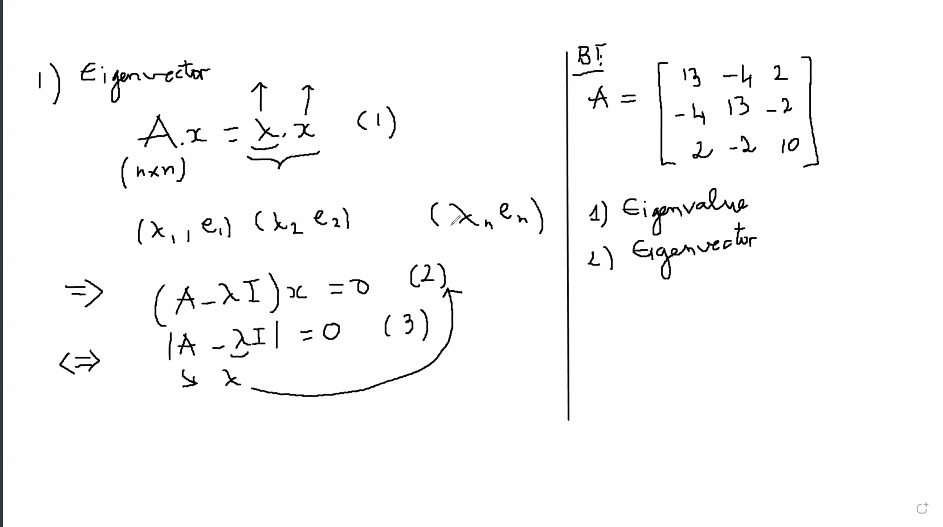 1) Eigenvector
A.x = λ.x (1)
(n×n)
(λ1, e1) (λ2 e2) (λn en)
=> (A - λI)x = 0 (2)
<=> |A - λI| = 0 (3)
↘ λ
BT:
A = [13 -4 2
-4 13 -2
2 -2 10]
1) Eigenvalue
2) Eigenvector